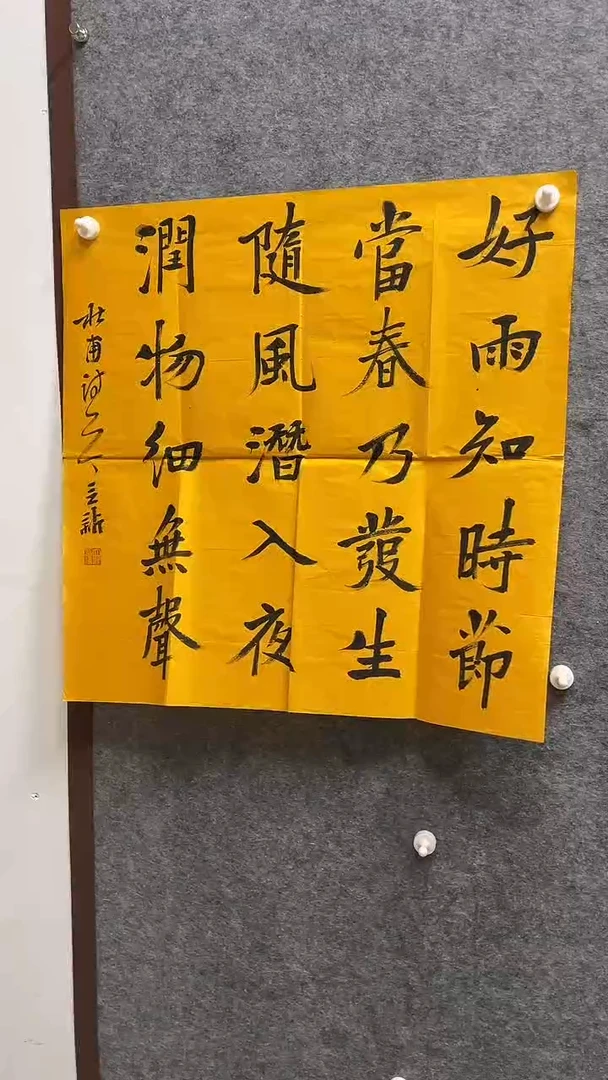 好雨知時節
當春乃發生
隨風潛入夜
潤物細無聲
杜甫詩